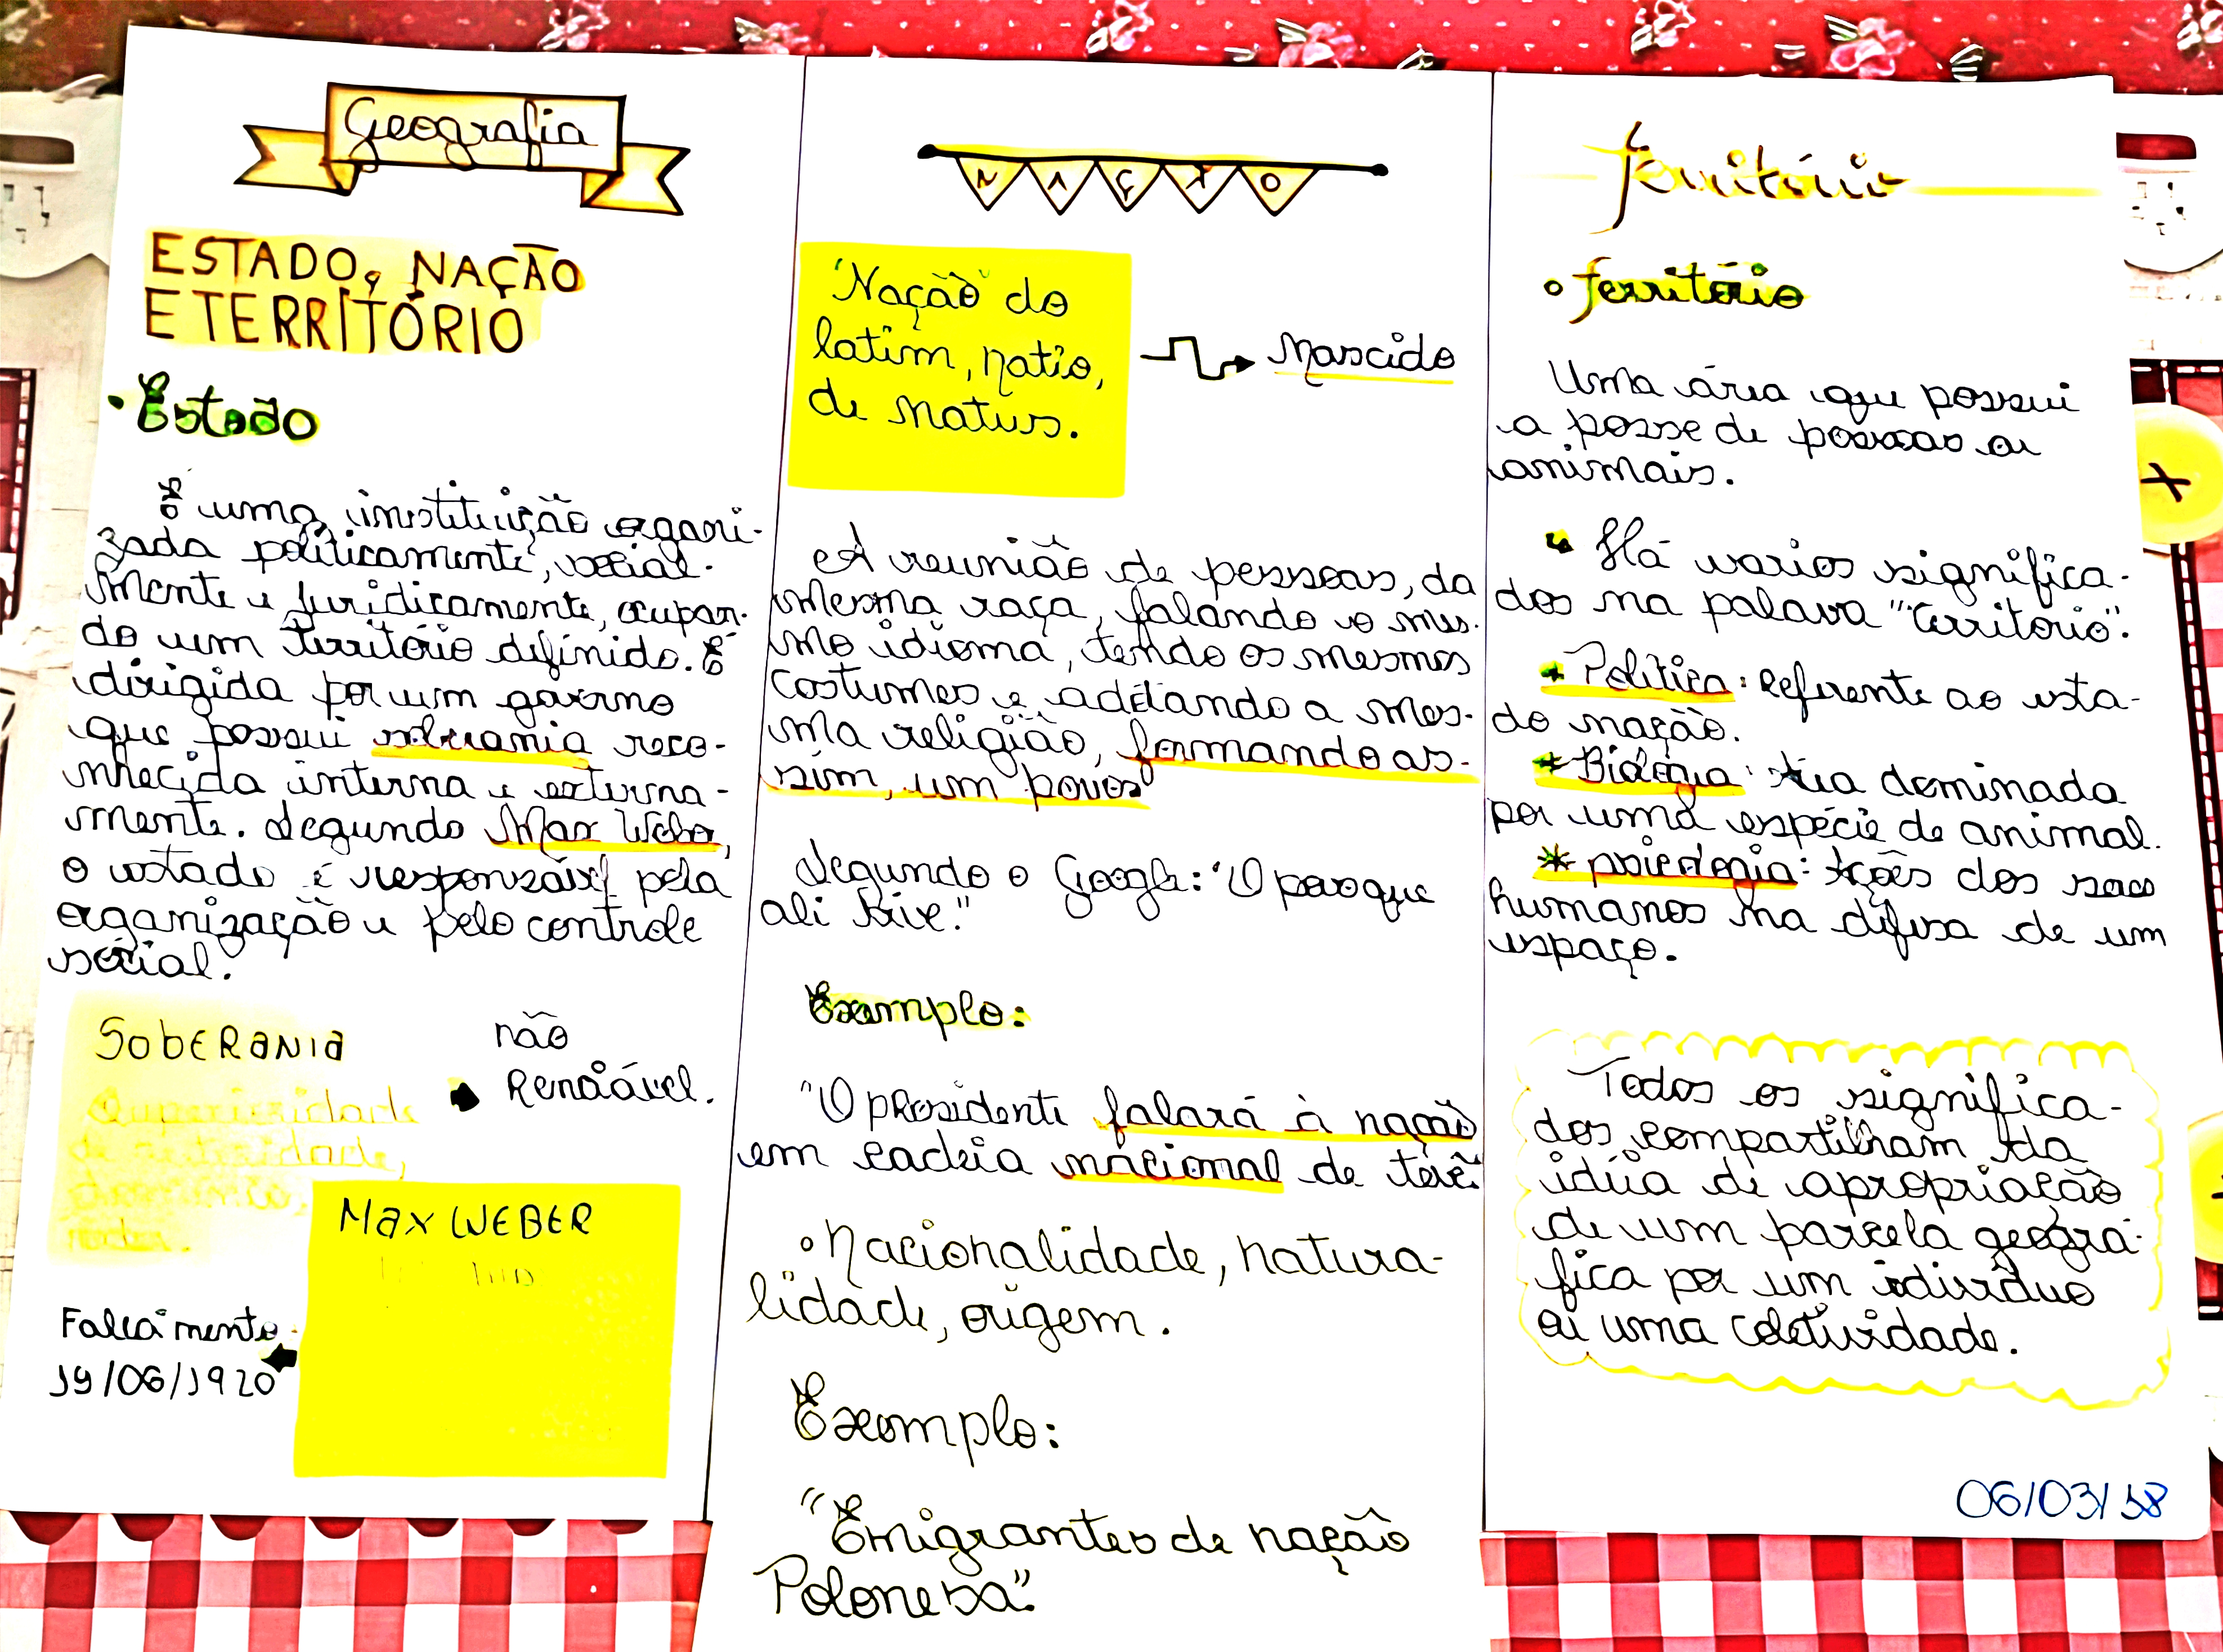 Geografia
ESTADO, NAÇÃO
E TERRITÓRIO
• Estado
É uma instituição organi-
zada politicamente, social-
mente e juridicamente, ocupan-
do um território definido. É
dirigida por um governo
que possui soberania reco-
nhecida interna e externa-
mente. Segundo Max Weber,
o estado é responsável pela
organização e pelo controle
social.
SOBERANIA
Superioridade
de autoridade,
domínio,
poder.
não
Renoável.
MAX WEBER
Falecimento
19/06/1920
NAÇÃO
"Nação" do
latim, natio,
de natus.
Nascido
A reunião de pessoas, da
mesma raça, falando o mes-
mo idioma, tendo os mesmos
costumes e adotando a mes-
ma religião, formando as-
sim, um povos
Segundo o Google: "O povo que
ali vive."
Exemplo:
"O presidente falará à nação
em cadeia nacional de tevê"
• Nacionalidade, natura-
lidade, origem.
Exemplo:
"Emigrantes de nação
Polonesa".
Território
• Território
Uma área que possui
a posse de pessoas ou
animais.
Há varios significa-
dos na palava "territorio".
Política: Referente ao esta-
do nação.
Biologia: Área dominada
por uma espécie de animal.
* psicologia: Ações dos seres
humanos na difesa de um
espaço.
Todos os significa-
dos compartilham da
idéia de apropriação
de um parcela geográ-
fica por um indivíduo
ou uma coletividade.
06/03/18